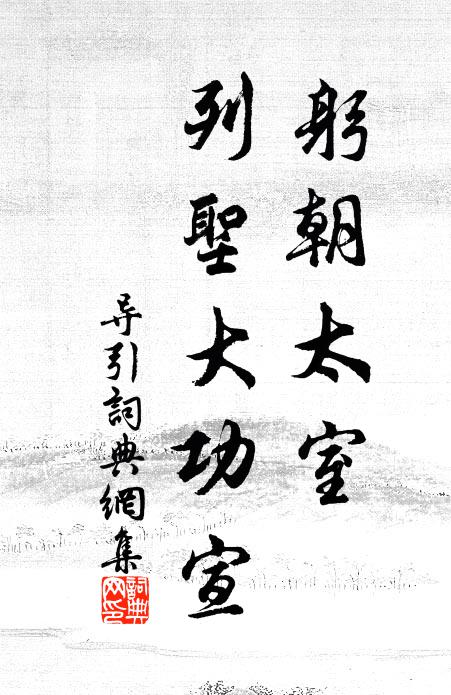 躬朝太室
列聖大功宣
导引詞典網集
詞典网印